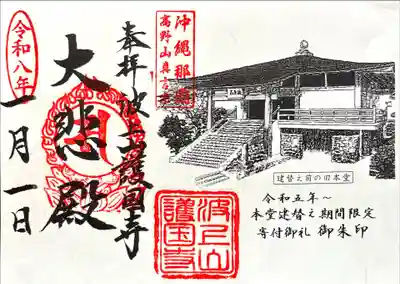 奉拝
波上山護国寺
沖縄那覇
高野山真言宗
大悲殿
令和八年
一月一日
波上山
護国寺
建替え前の旧本堂
令和五年~
本堂建替え期間限定
寄付御礼 御朱印